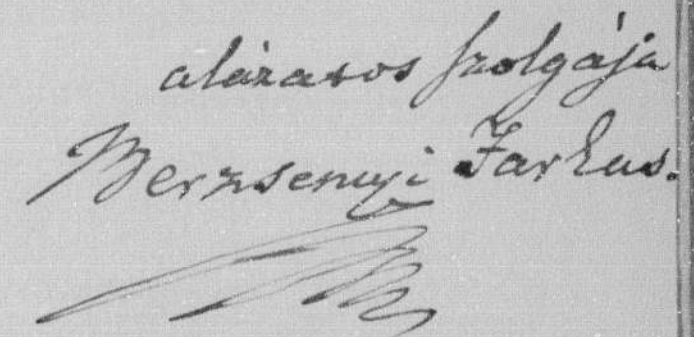 alázatos szolgája
Berzsenyi Farkas.